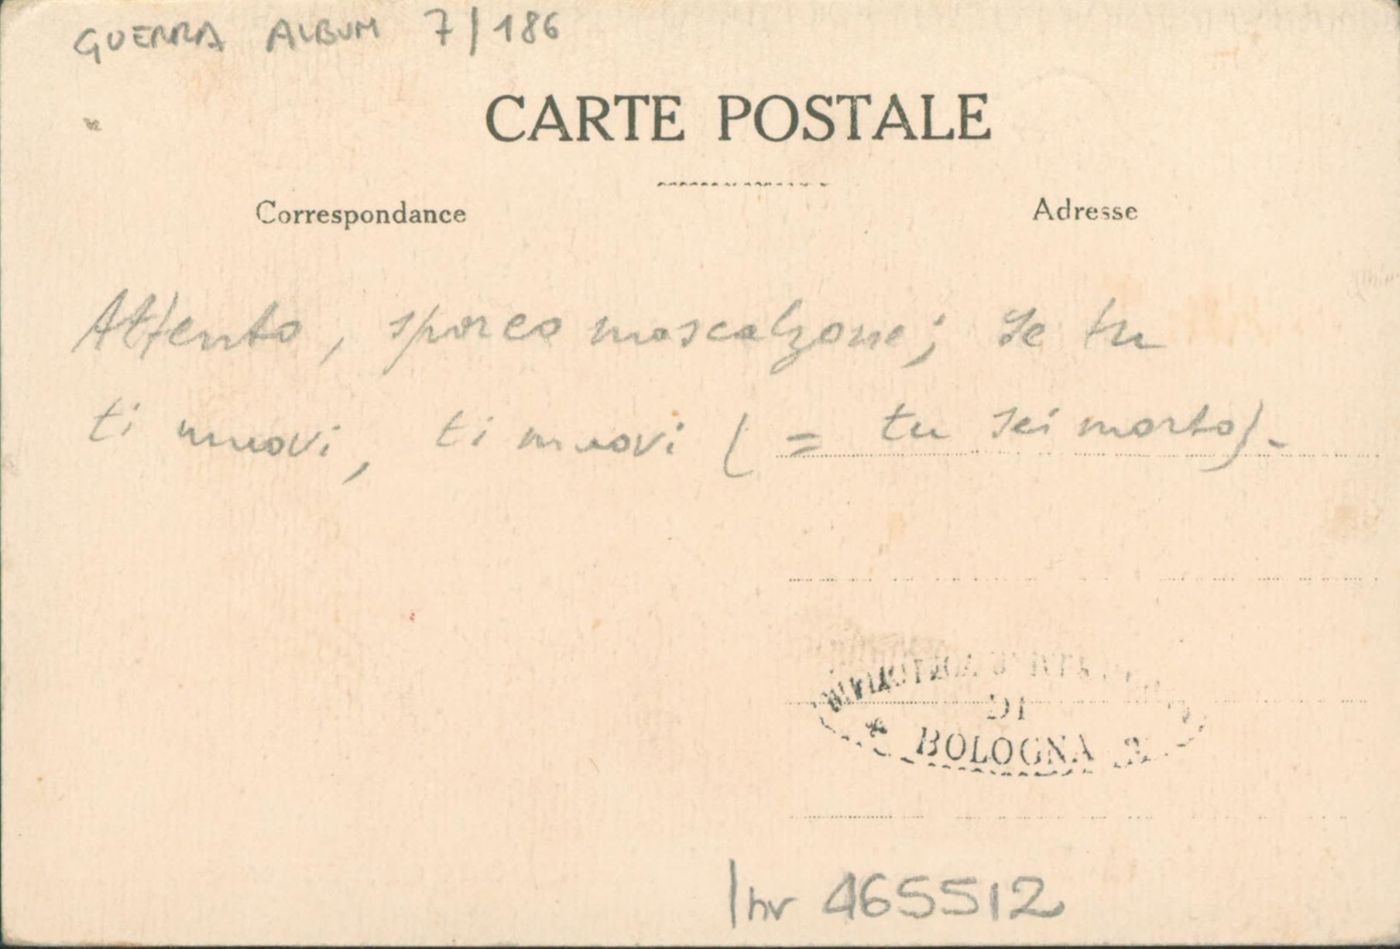 GUERRA ALBUM 7/186
CARTE POSTALE
Correspondance
Adresse
Attento, sporco mascalzone; se tu
ti muovi, ti muovi (= tu sei morto).
DI
BOLOGNA
Inv 465512